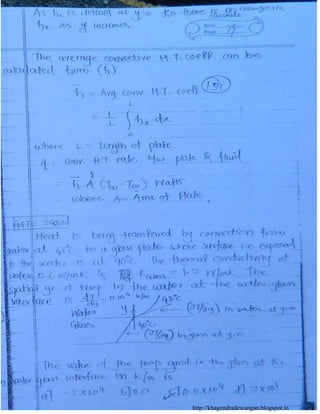 As hx is defined at y=0 so there is no change in
hx as y increases.
Classmate
Date
Page
The average convective H.T. coeff. can be
calculated from (h)
h̄ = Avg. conv. H.T. coeff (159)
= 1/L ∫₀ᴸ hx dx
where L = Length of plate
q = conv H.T. rate b/w plate & fluid
= h̄ A (Tw - T∞) Watts
where A = Area of Plate.
GATE
Heat is being transferred by convection from
water at 48°C to a glass plate whose surface i.e exposed
to the water is at 40°C. The thermal conductivity of
water 0.6 W/mk & KGlass = 1.2 W/mk. The
spatial gr of temp in the water at the water-glass
interface is dT/dy = 1×10⁴ k/m
48°C
Water
y
(∂T/∂y) in water at y=0
40°C
Glass
(∂T/∂y) in glass at y=0
The value of the temp grad in the glass at the
water glass interface in k/m is
a] -2×10⁴ b] 0.0 c] 0.5×10⁴ d] 2×10⁴
http://khagendradewangan.blogspot.in